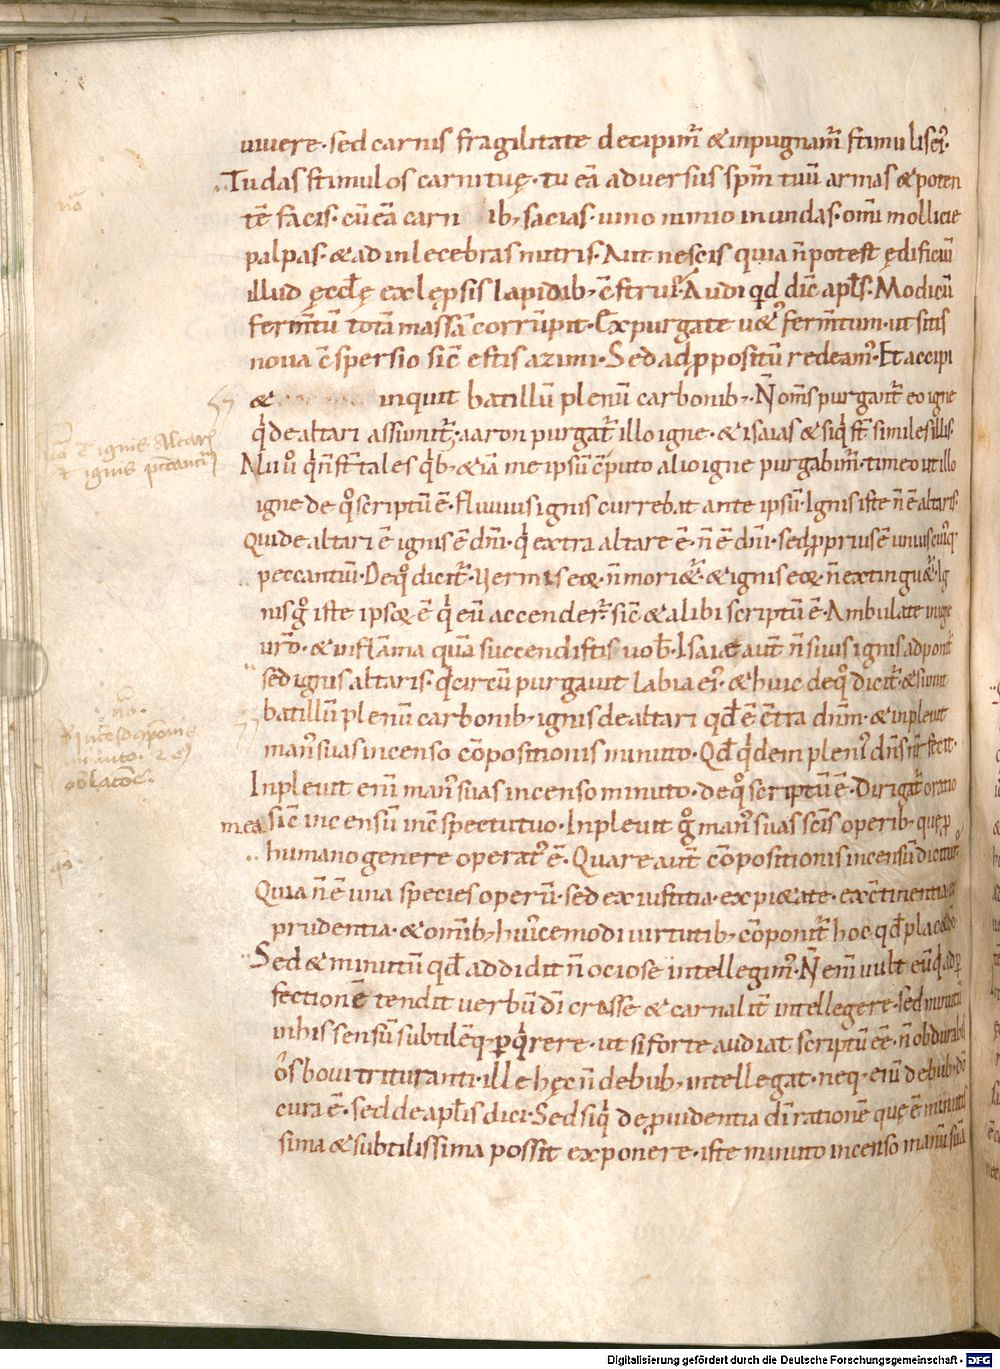 uiuere· sed carnis fragilitate decipimˀ &inpugnamˀ stimulis eiˀ·
Tu das stimulos carni tuę· tu eā aduersus spm̄ tuū armas & poten
tē facis· cū eā carn ib; sacias· uino nimio inundas· omi mollicie
palpas· & ad inlecebras nutris· Aut nescis quia n̄ potest ędificiū
illud ęccłę ex lępsis lapidib; c̄struiˀ· Audi qd̄ dic̄ apłs· Modicū
ferm̄tū totā massā corrūpit· Expurgate u&ˀ ferm̄tum· ut sitis
noua c̄spersio sic̄ estis azimi· Sed ad ꝓpositū redeamˀ· Et accipi
& inquit batillū plenū carbonib;· N̄ oms purgant̄ eo igne
q̇ de altari assumit̄· aaron purgat̄ illo igne· & isaias & siq̇ st̄ similes illis·
Alii ů q̇ n̄ st̄ tales q̇b; & iā me ipsū c̄puto alio igne purgabim̄· timeo ut illo
igne de q̊ scriptū ē· Fluuius ignis currebat ante ipsū· Ignis iste n̄ ē altaris·
Qui de altari ē ignis ē dn̄i· q̇ extra altare ē· n̄ ē dn̄i· sed ꝓprius ē uniuscuiˀq;
peccantiū· De q̊ dicit̄· Uermis eoꝝ n̄ mori&̄· & ignis eoꝝ n̄ extingu&̄· Ig
nis g̊ iste ipsoꝝ ē q̇ eū accender̄· sic̄ & alibi scriptū ē· Ambulate in igne
ur̄o· & in flāma quā succendistis uob̄· Isaiae aut̄ n̄ suus ignis adponit̄
sed ignis altaris· q̇ circū purgauit labia eiˀ· & huic de q̊ dicit̄· & sumit
batillū plenū carbonib; ignis de altari qd̄ ē c̄tra dnm̄· & inpleuit
manˀ suas incenso cōpositionis minuto· Qd̄ q̇dem plenˀ dn̄s nr̄ fecit·
Inpleuit eni manˀ suas incenso minuto· de q̊ scriptū ē· Dirigat̄ oratio
mea sic̄ incensū in c̄spectu tuo· Inpleuit g̊ manˀ suas sc̄is operib; quę ꝓ
humano genere operatˀ ē· Quare aut̄ cōpositionis incensū dicitur·
Quia n̄ ē una species operū· sed ex iustitia· ex pi&ate· ex c̄tinentia
prudentia· & omib; huiˀcemodi uirtutib; cōponit̄ hoc qd̄ plac& dō·
Sed & minutū qd̄ addidit n̄ ociose intellegimˀ· N̄ eni uult eū q̇ ad ꝑ
fectionē tendit uerbū dī crasse & carnalit̄ intellegere· sed minutū
in his sensū subtilēq; ꝑq̇rere· ut si forte audiat scriptū ēē· n̄ obdurab
os boui trituranti· ille hęc n̄ de bub; intellegat· neq; eni de bub; dō
cura ē· sed de apłis dici· Sed siq̇ de ꝓuidentia dī rationē quę ē minutis
sima & subtilissima possit exponere· iste minuto incenso manū suā
nō
nō ē ignis Altar
& ignis peccantiū
nō·
Digitalisierung gefördert durch die Deutsche Forschungsgemeinschaft - DFG